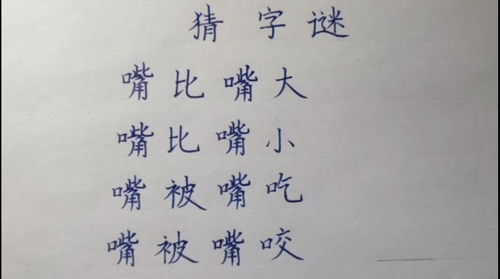 猜字谜
嘴比嘴大
嘴比嘴小
嘴被嘴吃
嘴被嘴咬